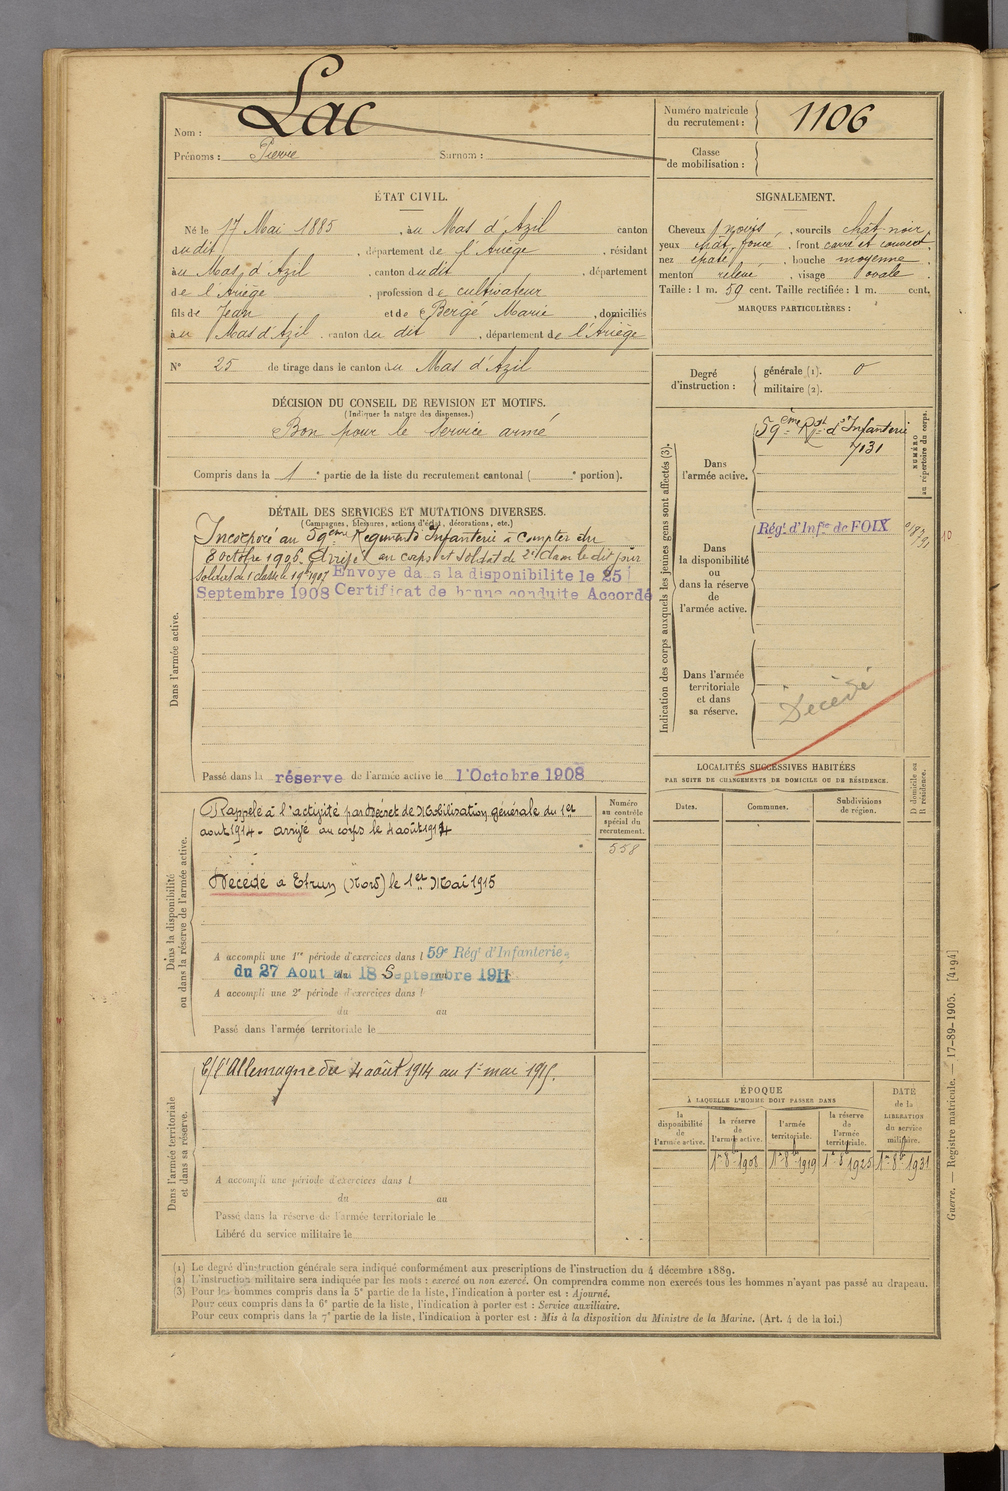 Nom : Lac
Prénoms : Pierre Surnom :
Numéro matricule du recrutement : 1106
Classe de mobilisation :
ÉTAT CIVIL.
Né le 17 Mai 1885, au Mas d'Azil canton
du dit, département de l'Ariège, résidant
au Mas d'Azil, canton du dit, département
de l'Ariège, profession de cultivateur
fils de Jean et de Bergé Marie, domiciliés
au Mas d'Azil, canton du dit, département de l'Ariège
N° 25 de tirage dans le canton du Mas d'Azil
SIGNALEMENT.
Cheveux noirs, sourcils chât noir
yeux chât foncé, front carré et couvert,
nez épaté, bouche moyenne
menton relevé, visage ovale.
Taille : 1 m. 59 cent. Taille rectifiée : 1 m. cent.
MARQUES PARTICULIÈRES :
Degré d'instruction : générale (1). 0
militaire (2).
DÉCISION DU CONSEIL DE REVISION ET MOTIFS.
(Indiquer la nature des dispenses.)
Bon pour le Service armé
Compris dans la 1e partie de la liste du recrutement cantonal ( e portion).
DÉTAIL DES SERVICES ET MUTATIONS DIVERSES.
(Campagnes, blessures, actions d'éclat, décorations, etc.)
Dans l'armée active.
Incorporé au 59ème Régiment d'Infanterie à compter du
8 octobre 1906. Arrivé au corps et soldat de 2e classe le dit jour
Soldat de 1e classe le 1907 Envoyé dans la disponibilité le 25
Septembre 1908 Certificat de bonne conduite Accordé
Passé dans la réserve de l'armée active le 1 Octobre 1908
Indication des corps auxquels les jeunes gens sont affectés (3).
NUMÉRO au répertoire du corps.
Dans l'armée active.
59ème Rgt d'Infanterie
7131
Dans la disponibilité ou dans la réserve de l'armée active.
Régt d'Infie de FOIX
Dans l'armée territoriale et dans sa réserve.
Décédé
LOCALITÉS SUCCESSIVES HABITÉES
PAR SUITE DE CHANGEMENTS DE DOMICILE OU DE RÉSIDENCE.
Dates. Communes. Subdivisions de région. D domicile ou R résidence.
Dans la disponibilité ou dans la réserve de l'armée active.
Rappelé à l'activité par Décret de Mobilisation générale du 1er
août 1914 - arrivé au corps le 4 août 1914
Numéro au contrôle spécial du recrutement.
558
Décédé à Etrun (Nord) le 1er Mai 1915
A accompli une 1re période d'exercices dans l 59e Régt d'Infanterie
du 27 Aout au 18 Septembre 1911
A accompli une 2e période d'exercices dans l
du au
Passé dans l'armée territoriale le
Dans l'armée territoriale et dans sa réserve.
C/ l'Allemagne du 4 août 1914 au 1er mai 1915.
A accompli une période d'exercices dans l
du au
Passé dans la réserve de l'armée territoriale le
Libéré du service militaire le
ÉPOQUE
À LAQUELLE L'HOMME DOIT PASSER DANS
la disponibilité de l'armée active. la réserve de l'armée active. l'armée territoriale. la réserve de l'armée territoriale. DATE de la LIBÉRATION du service militaire.
1er 8bre 1908 1er 8bre 1919 1er 8bre 1925 1er 8bre 1931
(1) Le degré d'instruction générale sera indiqué conformément aux prescriptions de l'instruction du 4 décembre 1889.
(2) L'instruction militaire sera indiquée par les mots : exercé ou non exercé. On comprendra comme non exercés tous les hommes n'ayant pas passé au drapeau.
(3) Pour les hommes compris dans la 5e partie de la liste, l'indication à porter est : Ajourné.
Pour ceux compris dans la 6e partie de la liste, l'indication à porter est : Service auxiliaire.
Pour ceux compris dans la 7e partie de la liste, l'indication à porter est : Mis à la disposition du Ministre de la Marine. (Art. 4 de la loi.)
Guerre. — Registre matricule. — 17-89-1905. [4194]